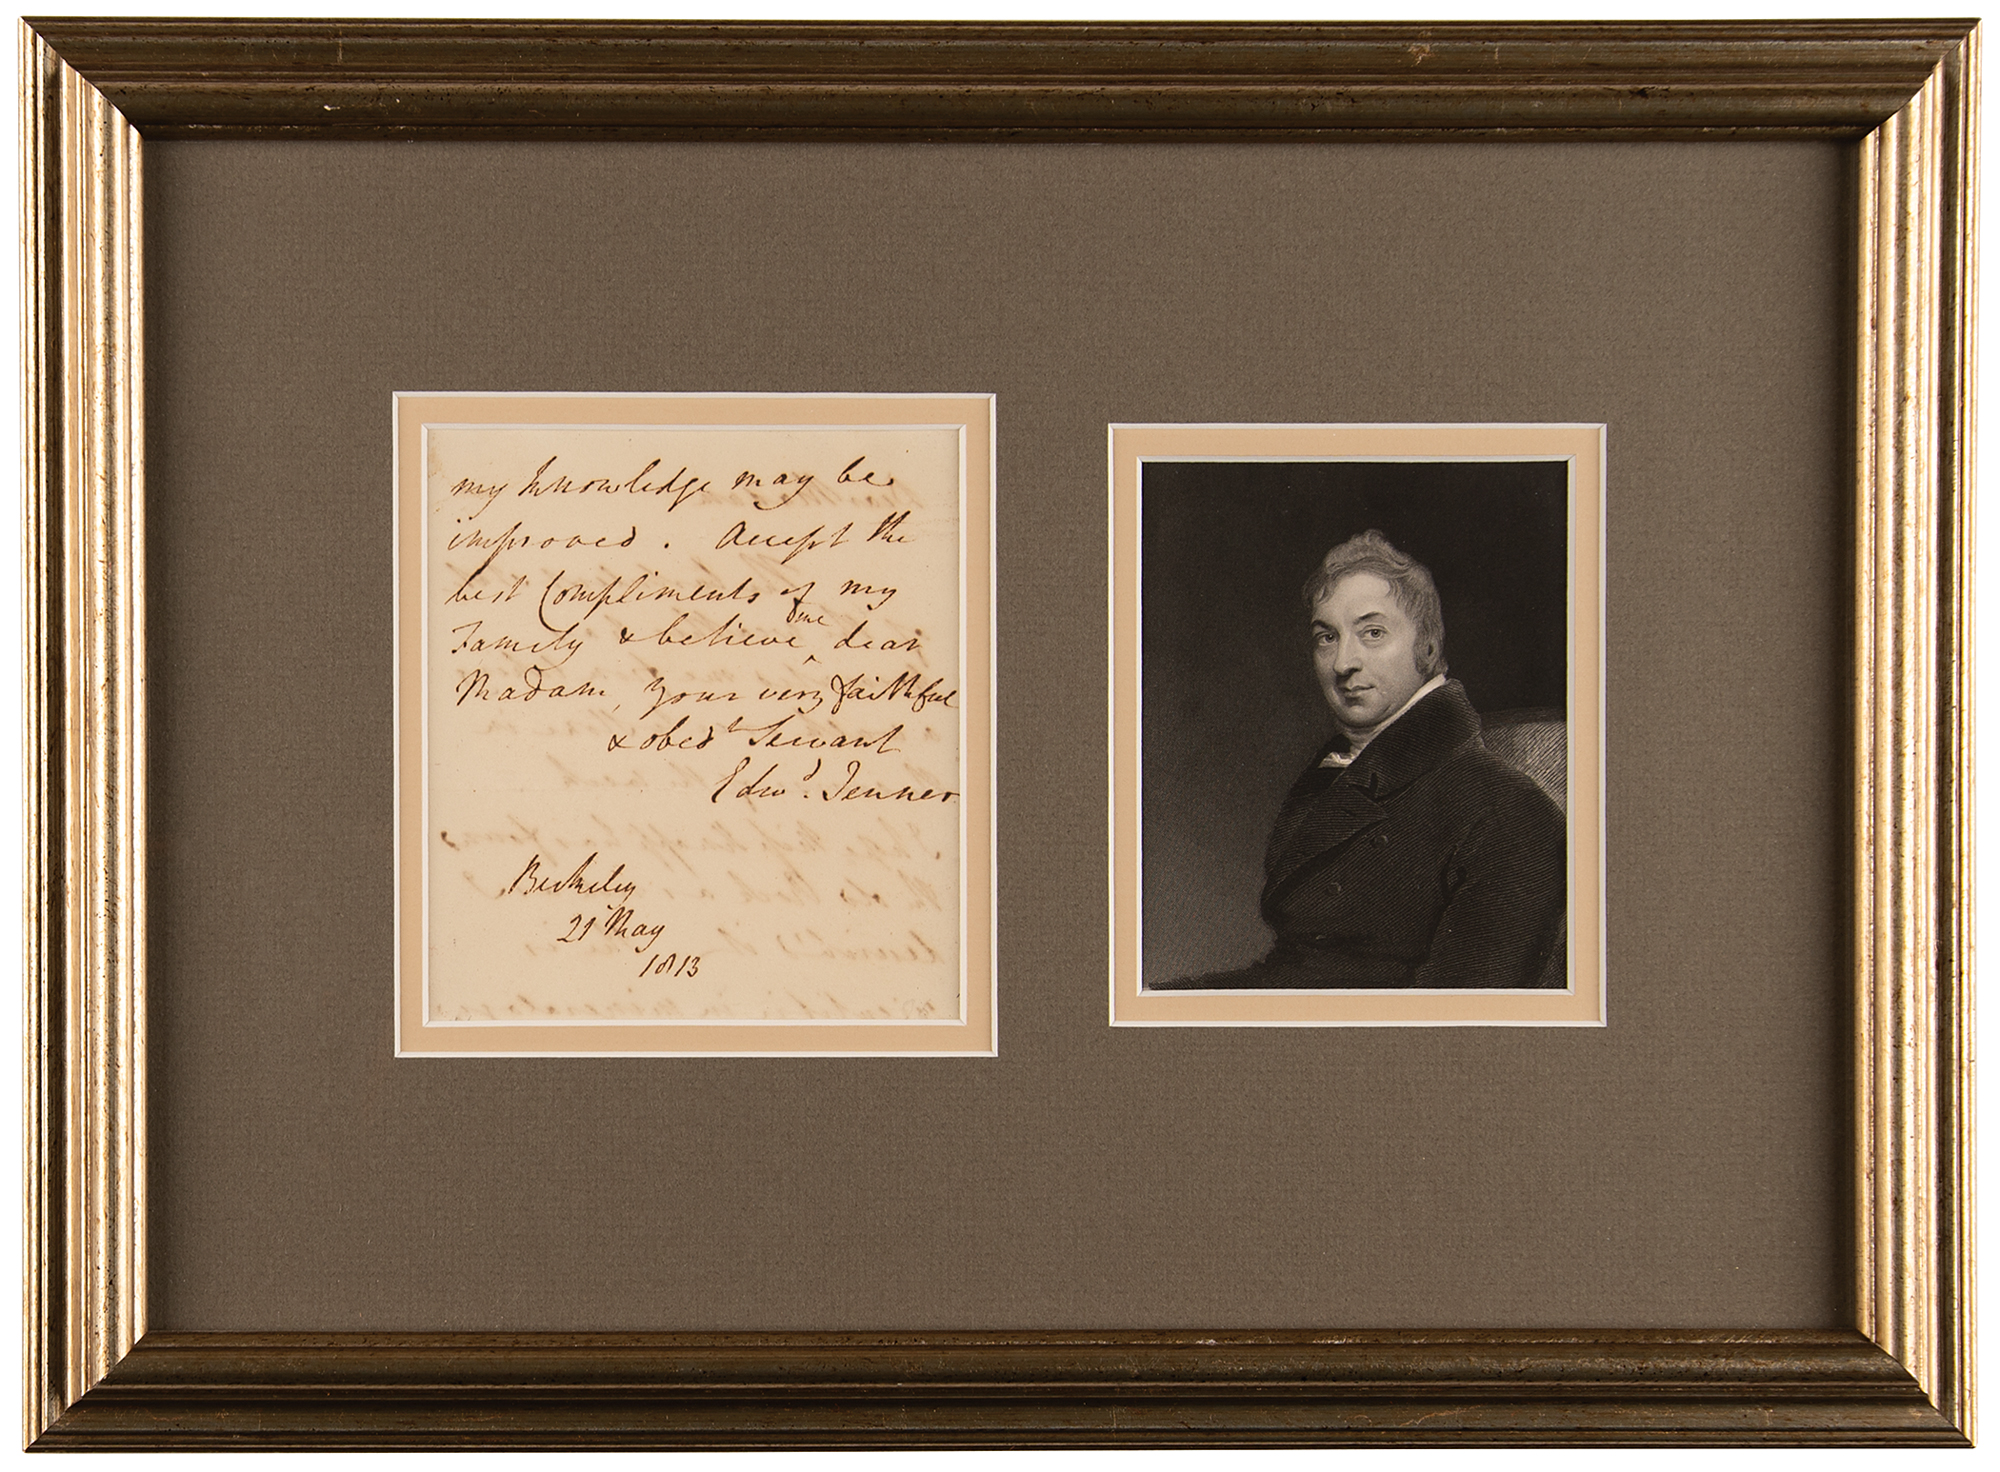 my knowledge may be
improved. Accept the
best Compliments of my
Family & believe me dear
Madam, your very faithful
& obedt Servant
Edwd. Jenner
Berkeley
21 May
1813